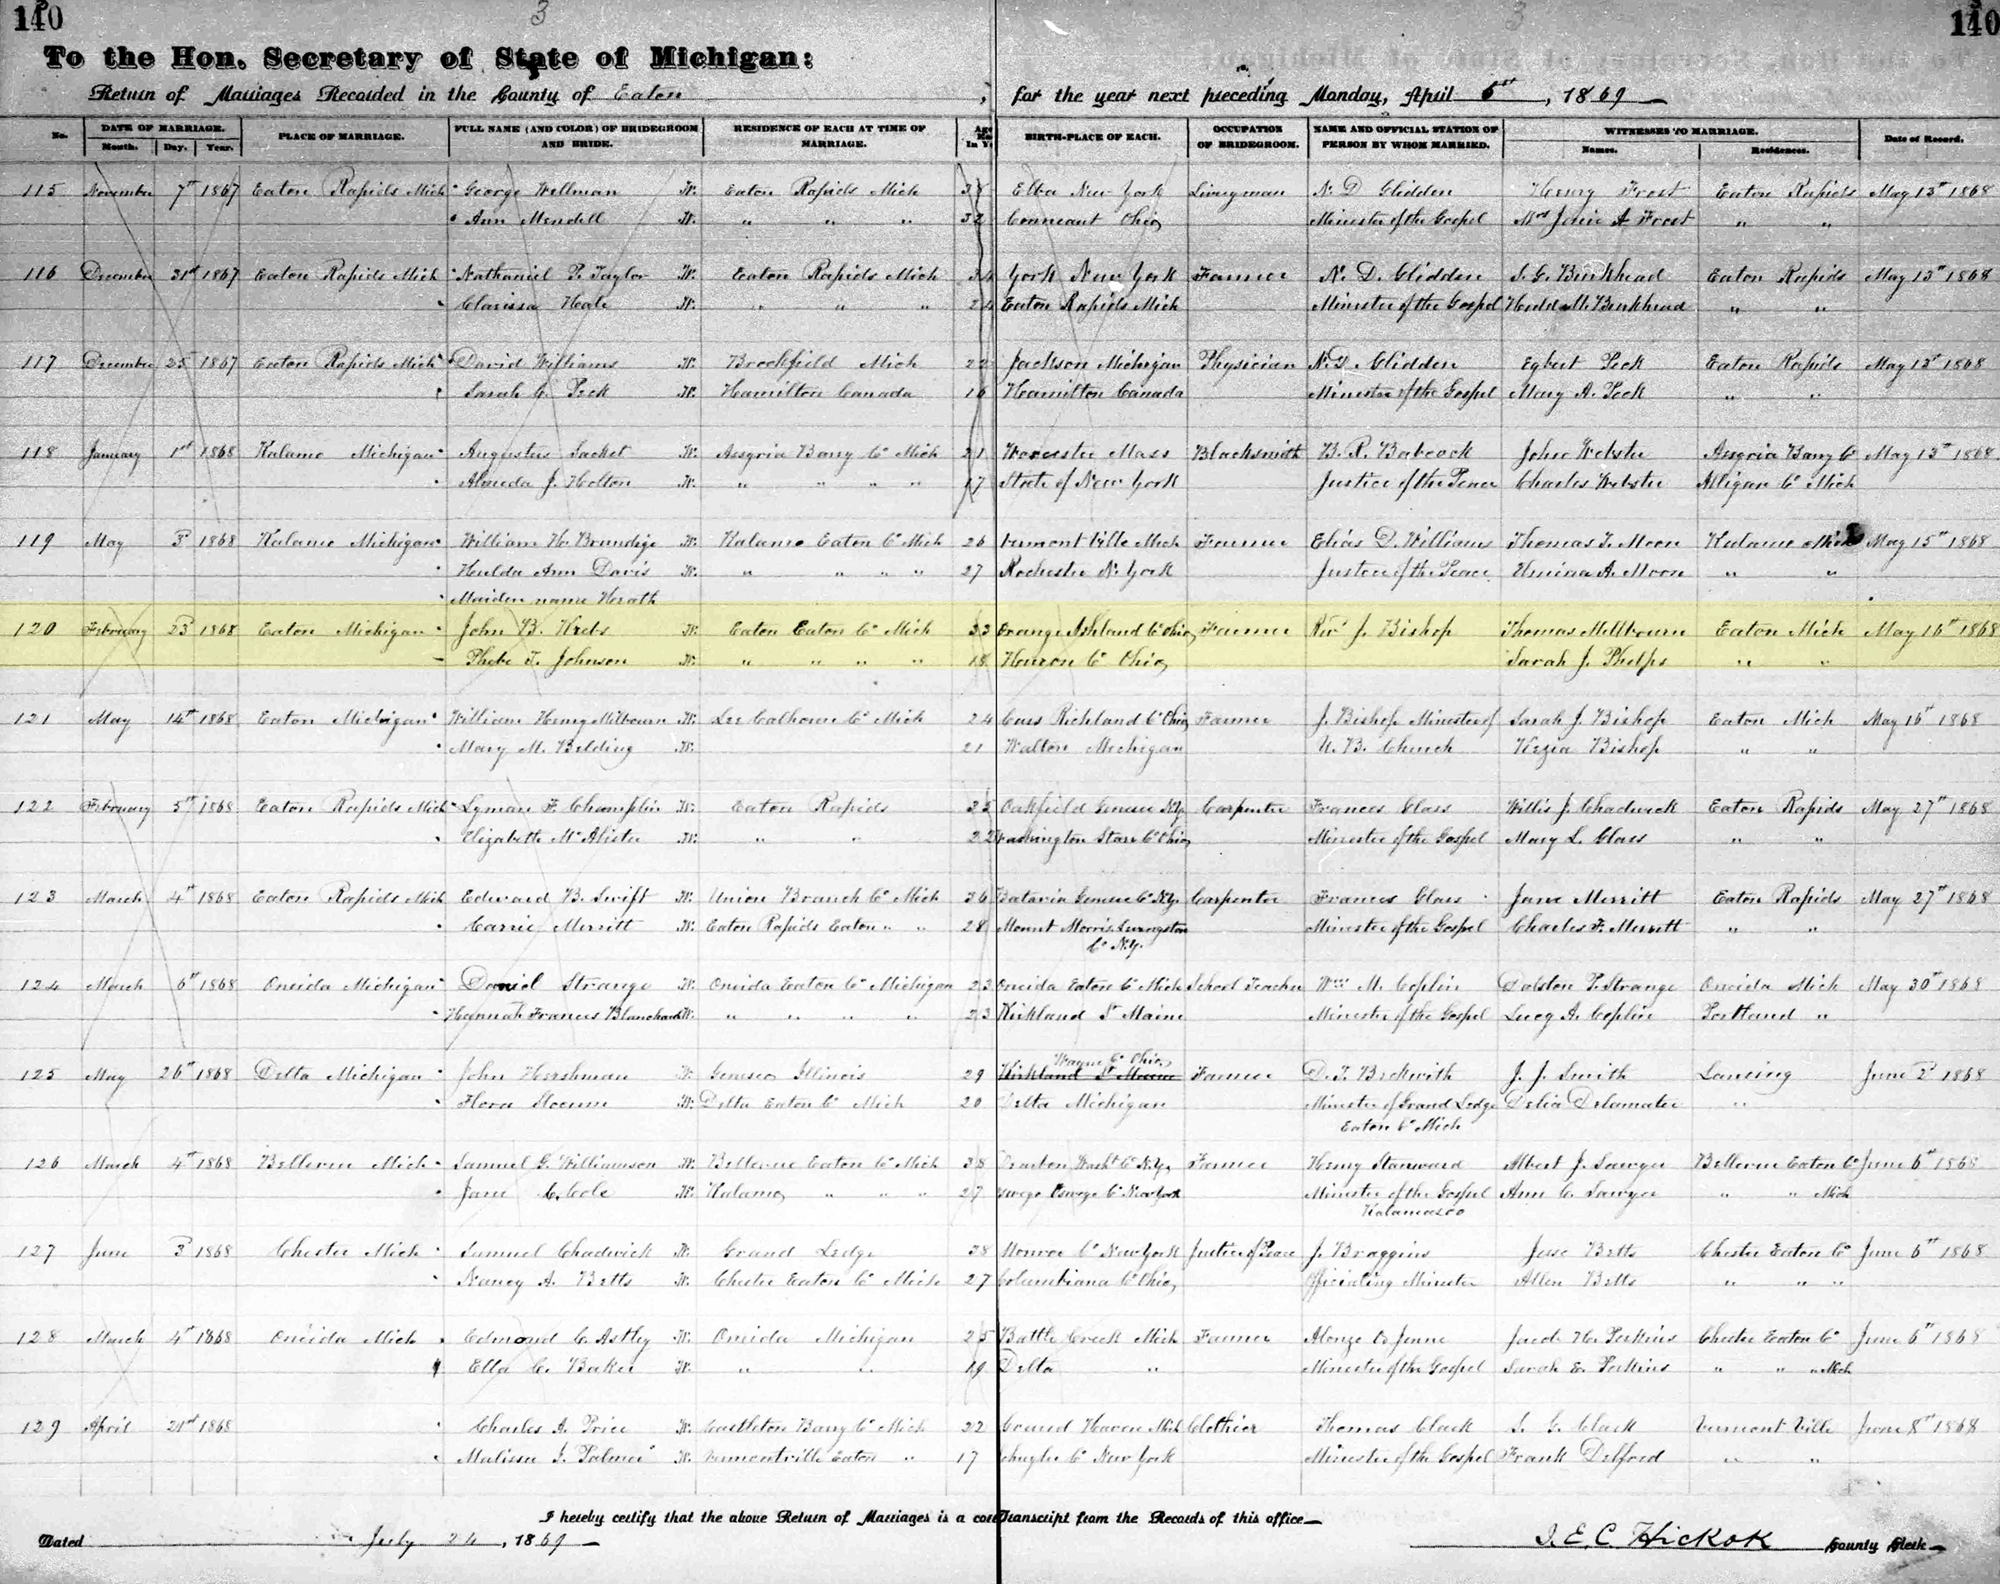 140 3 3 140
To the Hon. Secretary of State of Michigan:
Return of Marriages Recorded in the County of Eaton, for the year next preceding Monday, April 5th, 1869
No. DATE OF MARRIAGE. PLACE OF MARRIAGE. FULL NAME (AND COLOR) OF BRIDEGROOM RESIDENCE OF EACH AT TIME OF Age BIRTH-PLACE OF EACH. OCCUPATION NAME AND OFFICIAL STATION OF WITNESSES TO MARRIAGE. Date of Record.
Month. Day. Year. AND BRIDE. MARRIAGE. In Ye OF BRIDEGROOM. PERSON BY WHOM MARRIED. Names. Residences.
115 November 7th 1867 Eaton Rapids Mich George Wellman W. Eaton Rapids Mich 38 Elba New York Liveryman N. D. Glidden Henry Frost Eaton Rapids May 13th 1868
Ann Mendell W. " " " 32 Conneaut Ohio Minister of the Gospel Mrs Janie A Frost " "
116 December 31st 1867 Eaton Rapids Mich Nathaniel P. Taylor W. Eaton Rapids Mich 34 York New York Farmer N. D. Glidden S. G. Eaton Rapids May 13th 1868
Clarissa Heale W. " " " 24 Eaton Rapids Mich Minister of the Gospel " "
117 December 25 1867 Eaton Rapids Mich David Williams W. Brookfield Mich 22 Jackson Michigan Physician N. D. Glidden Egbert Peck Eaton Rapids May 13th 1868
Sarah C. Peck W. Hamilton Canada 16 Hamilton Canada Minister of the Gospel Mary A. Peck " "
118 January 1st 1868 Kalamo Michigan Augustus Sacket W. Assyria Barry Co Mich 21 Worcester Mass Blacksmith B. R. Babcock John Webster Assyria Barry Co May 13th 1868
Almeda J. Holton W. " " " " 17 State of New York Justice of the Peace Charles Webster Alligan Co Mich
119 May 3d 1868 Kalamo Michigan William H. Brundige W. Kalamo Eaton Co Mich 26 Vermont Ville Mich Farmer Elias D. Williams Thomas J. Moon Kalamo Mich May 15th 1868
Hulda Ann Davis W. " " " " 27 Rochester N. York Justice of the Peace A. Moon " "
Maiden name Horath
120 February 23 1868 Eaton Michigan John B. Krebs W. Eaton Eaton Co Mich 33 Orange Ashland Co Ohio Farmer Rev J. Bishop Thomas Millbourn Eaton Mich May 16th 1868
Phebe T. Johnson W. " " " " 18 Huron Co Ohio Sarah J. Phelps " "
121 May 14th 1868 Eaton Michigan William Henry Milbourn W. Lee Calhoun Co Mich 24 Cass Richland Co Ohio Farmer J. Bishop Minister of Sarah J. Bishop Eaton Mich May 16th 1868
Mary M. Belding W. 21 Walton Michigan U. B. Church Kezia Bishop " "
122 February 5th 1868 Eaton Rapids Mich Lyman F. Champlin W. Eaton Rapids 25 Oakfield Genesee N.Y. Carpenter Frances Glass Willis J. Chadwick Eaton Rapids May 27th 1868
Elizabeth McAlister W. " " 22 Washington Stark Co Ohio Minister of the Gospel Mary L. Glass " "
123 March 4th 1868 Eaton Rapids Mich Edward B. Swift W. Union Branch Co Mich 36 Batavia Genesee Co N.Y. Carpenter Frances Glass Jane Merritt Eaton Rapids May 27th 1868
Carrie Merritt W. Eaton Rapids Eaton " " 28 Mount Morris Livingston Minister of the Gospel Charles F. Merritt " "
Co N.Y.
124 March 6th 1868 Oneida Michigan Daniel Strange W. Oneida Eaton Co Michigan 23 Oneida Eaton Co Mich School Teacher Wm M. Coplin Dolston P. Strange Oneida Mich May 30th 1868
Hannah Frances Blanchard W. " " " " 23 Kirkland St Maine Minister of the Gospel Lucy A. Coplin Portland "
Wayne Co Ohio
125 May 26th 1868 Delta Michigan John Hershman W. Geneseo Illinois 29 Kirkland St Maine Farmer D. T. Beckwith J. J. Smith Lansing June 2d 1868
Flora Slocum W. Delta Eaton Co Mich 20 Delta Michigan Minister of Grand Ledge Delia Delamater "
Eaton Co Mich
126 March 4th 1868 Bellevue Mich Samuel G. Williamson W. Bellevue Eaton Co Mich 38 Washt Co N.Y. Farmer Henry Stanward Albert J. Sawyer Bellevue Eaton Co June 6th 1868
Jane C. Cole W. Kalamo " " " 27 Oswego Oswego Co New York Minister of the Gospel Ann C. Sawyer " " Mich
Kalamazoo
127 June 3d 1868 Chester Mich Samuel Chadwick W. Grand Ledge 38 Monroe Co New York Justice of Peace J. Braggins Jesse Betts Chester Eaton Co June 6th 1868
Nancy A. Betts W. Chester Eaton Co Mich 27 Columbiana Co Ohio Officiating Minister Allen Betts " " "
128 March 4th 1868 Oneida Mich Edmond C. Astley W. Oneida Michigan 25 Battle Creek Mich Farmer Alonzo Jacob H. Perkins Chester Eaton Co June 6th 1868
Ella C. Baker W. " " 19 Delta " Minister of the Gospel Sarah E. Perkins " " " Mich
129 April 21st 1868 Charles A. Price W. Castleton Barry Co Mich 22 Grand Haven Mich Clothier Thomas Clark S. G. Clark Vermont Ville June 8th 1868
Malissa J. Palmer W. Vermontville Eaton " 17 Schuyler Co New York Minister of the Gospel Frank Delford " "
I hereby certify that the above Return of Marriages is a cor Transcript from the Records of this office
Dated July 24, 1869 I. E. C. Hickok County Clerk